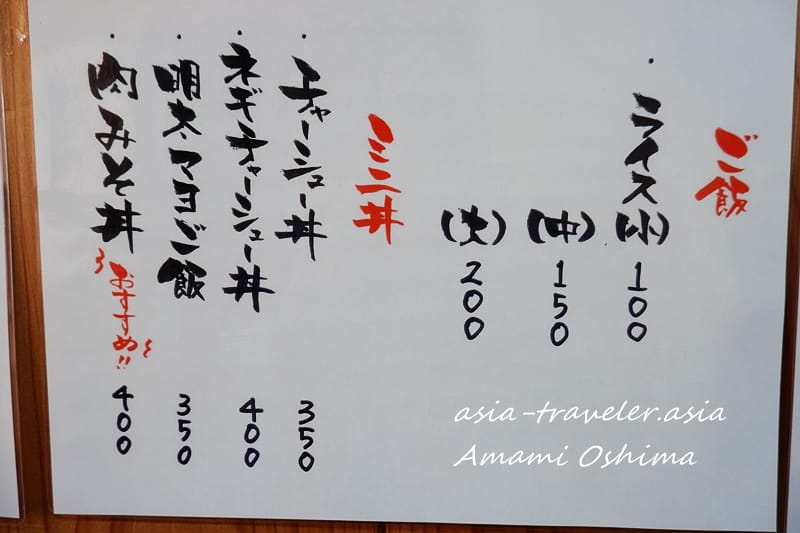 ご飯
・ライス(小) 100
(中) 150
(大) 200
ミニ丼
・チャーシュー丼 350
・ネギチャーシュー丼 400
・明太マヨご飯 350
・肉みそ丼 おすすめ!! 400
asia-traveler.asia
Amami Oshima